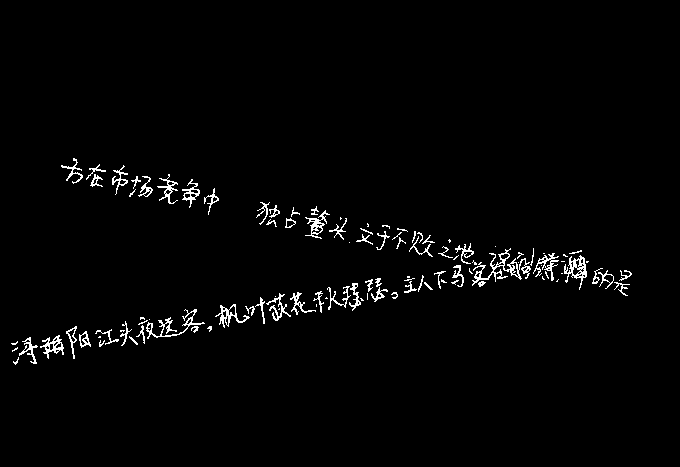 方在市场竞争中 独占鳌头.立于不败之地.
浔阳江头夜送客,枫叶荻花秋瑟瑟。主人下马客在船,的是